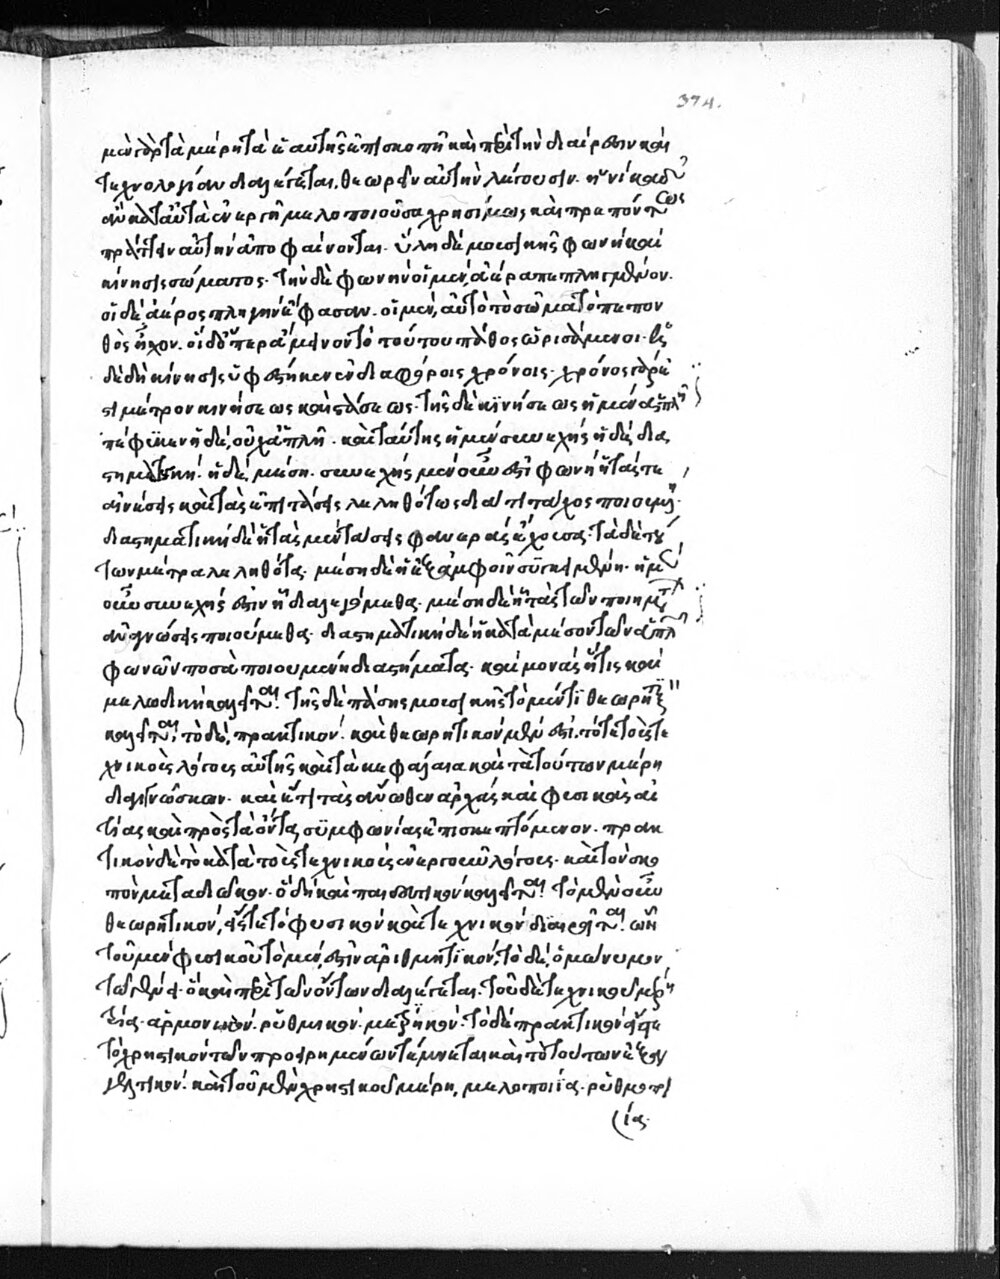 μὲν γὰρ τὰ μέρη τὰ ἐ αυτῆς ἐπισκοπῆ καὶ περὶ τὴν διαίρεσιν καὶ
τεχνολογίαν διαλέγεται, θεωρεῖν αὐτὴν λέγουσιν. ἡνίκα δ'
ἂν κατὰ ταῦτὰ ἐνεργῆ μελοποιοῦσα χρησίμως καὶ πρεπόντως
πράττειν αὐτὴν ἀποφαίνονται. ὕλη δὲ μουσικῆς φωνὴ καὶ
κίνησις σώματος. τὴν δὲ φωνὴν οἱ μὲν ἀέρα πεπληγμένον.
οἱ δὲ ἀέρος πληγὴν ἔφασαν. οἱ μὲν, αὐτὸ τὸ σῶμα τὸ πεπον
θὸς ἦχον. οἱ δ' ὅπερ ἄμεινον τὸ τούτου πάθος ὁρισάμενοι.
δὲ δὴ κίνησις ὑφέστηκεν ἐν διαφόροις χρόνοις. χρόνος γάρ ἐ
στι μέτρον κινήσεως καὶ στάσεως. τῆς δὲ κϊνήσεως ἡ μὲν ἁπλῆ
πέφϋκεν ἡ δὲ, οὐχ ἁπλῆ. καὶ ταύτης ἡ μὲν συνεχὴς ἡ δὲ, δια
στηματικὴ. ἡ δὲ, μέση. συνεχὴς μὲν οὖν ἐστὶ φωνὴ ἡ τάς τε
ἀνέσεις καὶ τὰς ἐπιτάσεις λεληθότως διά τι τάχος ποιουμένη.
διαστηματικὴ δὲ ἡ τὰς μὲν τάσεις φανερὰς ἔχουσα. τὰ δὲ τού
των μέτρα λεληθότα. μέση δὲ ἡ ἐξ ἀμφοῖν συγκειμένη. ἡ μὲν
οὖν συνεχής ἐστιν ἧ διαλεγόμεθα. μέση δὲ ἧ τὰς τῶν ποιημάτων
ἀναγνώσεις ποιούμεθα. διαστηματικὴ δὲ ἡ κατὰ μέσον τῶν ἁπλῶν
φωνῶν ποσὰ ποιουμένη διαστήματα. καὶ μονάς, ἥτις καὶ
μελωδικὴ καλεῖται. τῆς δὲ πάσης μουσικῆς τὸ μέν τϊ θεωρητϊκὸν
καλεῖται, τὸ δὲ, πρακτικὸν. καὶ θεωρητικὸν μέν ἐστι, τό τε τοὺς τε
χνικοὺς λόγους αὐτῆς καὶ τὰ κεφάλαια καὶ τὰ τούτων μέρη
διαγινῶσκων. καὶ ἔτι τὰς ἄνωθεν ἀρχὰς καὶ φυσικὰς αἰ
τίας καὶ πρὸς τὰ ὄντα συμφωνίας ἐπισκεπτόμενον. πρακ
τικὸν δὲ τὸ κατὰ τοὺς τεχνικοὺς ἐνεργοῦν λόγους. καὶ τὸν σκο
πὸν μεταδιῶκον. ὃ δὴ καὶ παιδευτικὸν καλεῖται. τὸ μὲν οὖν
θεωρητικὸν, εἴς τε τὸ φυσικὸν καὶ τεχνικὸν διαιρεῖται. ὧν
τοῦ μὲν φυσικοῦ τὸ μέν, ἐστιν ἀριθμητϊκὸν, τὸ δὲ, ὁμώνυμον
τῶ γένει. ὃ καὶ περὶ τῶν ὄντων διαλέγεται. τοῦ δὲ τεχνικοῦ μέρη
τρία. ἁρμονικὸν. ῥυθμικὸν. μετρϊκὸν. τὸ δὲ πρακτικὸν εἴς τε
τὸ χρηστικὸν τῶν προειρημένων τέμνεται καὶ τὸ τούτων ἐξαγ
γελτικὸν. καὶ τοῦ μὲν χρηστικοῦ μέρη, μελοποιΐα. ῥυθμοποι
ία.